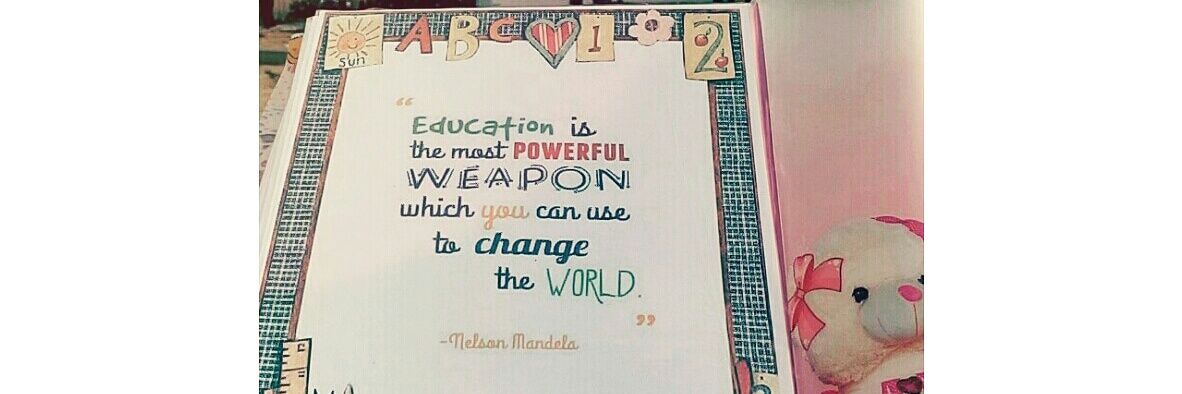 Sun ABC 1 2
“
Education is
the most POWERFUL
WEAPON
which you can use
to change
the WORLD.
”
-Nelson Mandela